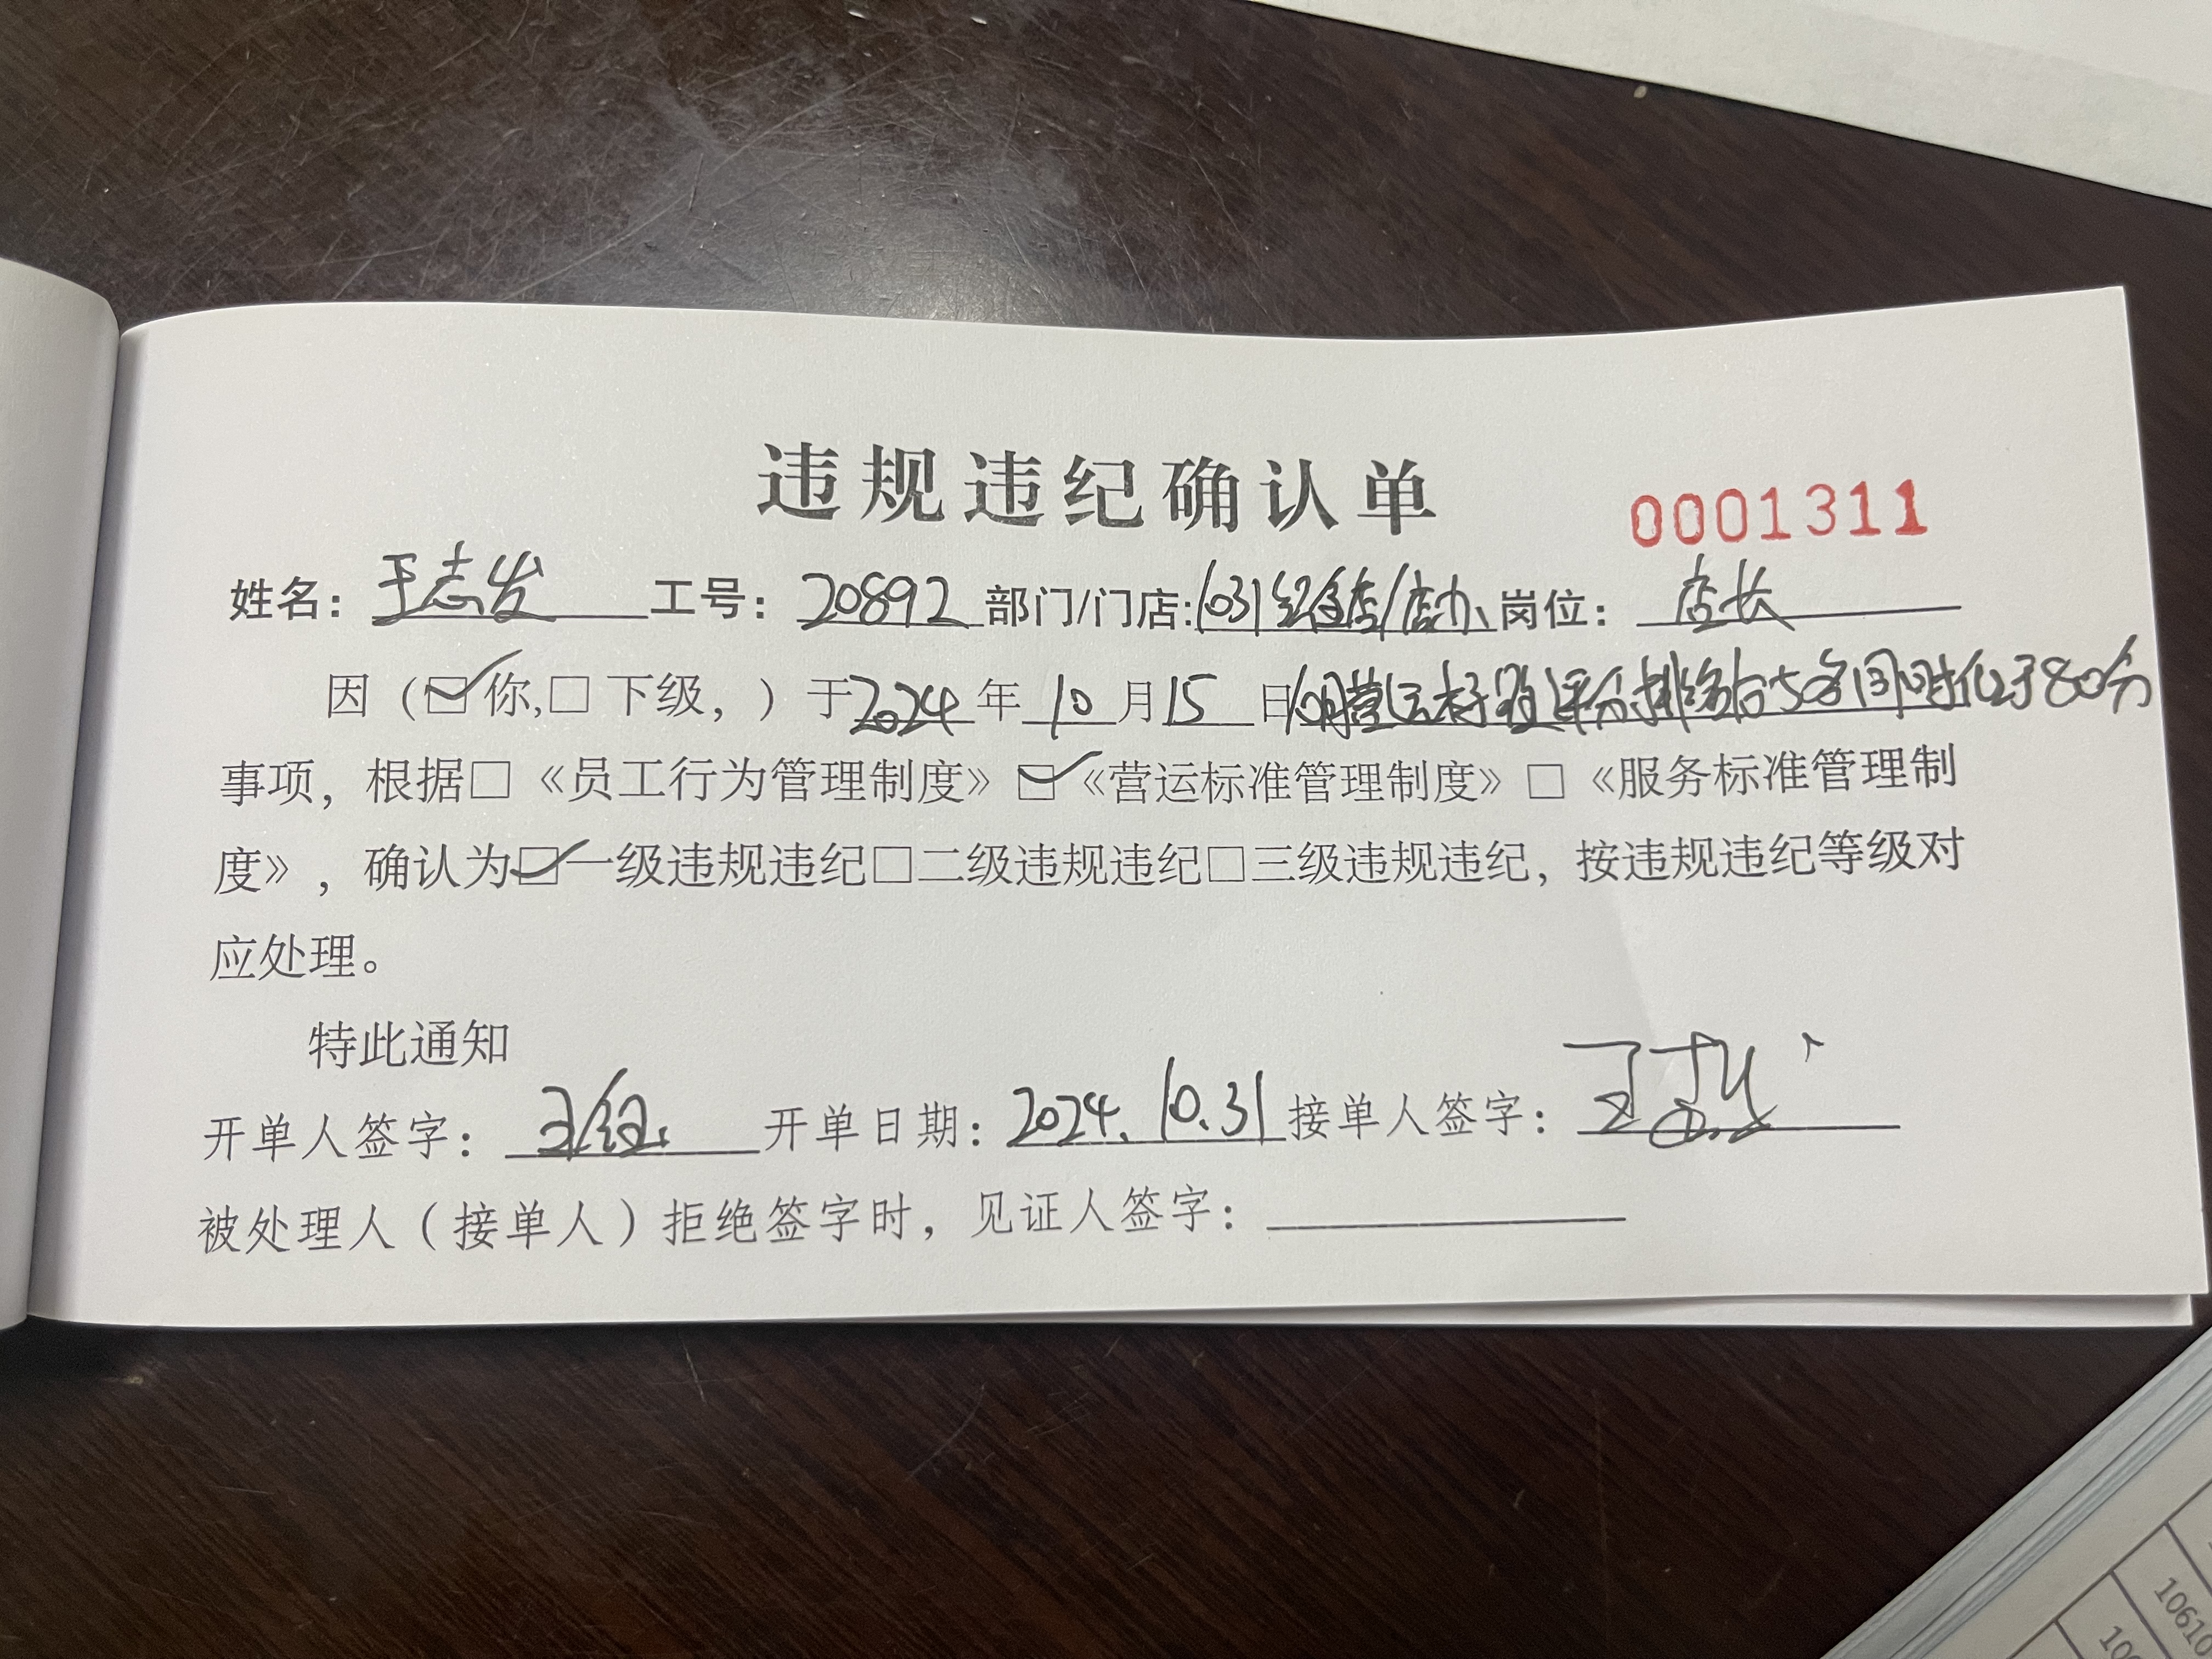 违规违纪确认单
0001311
姓名： 王志发 工号： 20892 部门/门店: 1031 店/店办 岗位： 店长
因（☑你,□下级，）于2024年10月15日10月营运标准评分排名后5名同时低于80分
事项，根据□《员工行为管理制度》☑《营运标准管理制度》□《服务标准管理制
度》，确认为☑一级违规违纪□二级违规违纪□三级违规违纪，按违规违纪等级对
应处理。
特此通知
开单人签字： 王 开单日期： 2024.10.31 接单人签字： 王志发
被处理人（接单人）拒绝签字时，见证人签字：
10610
100